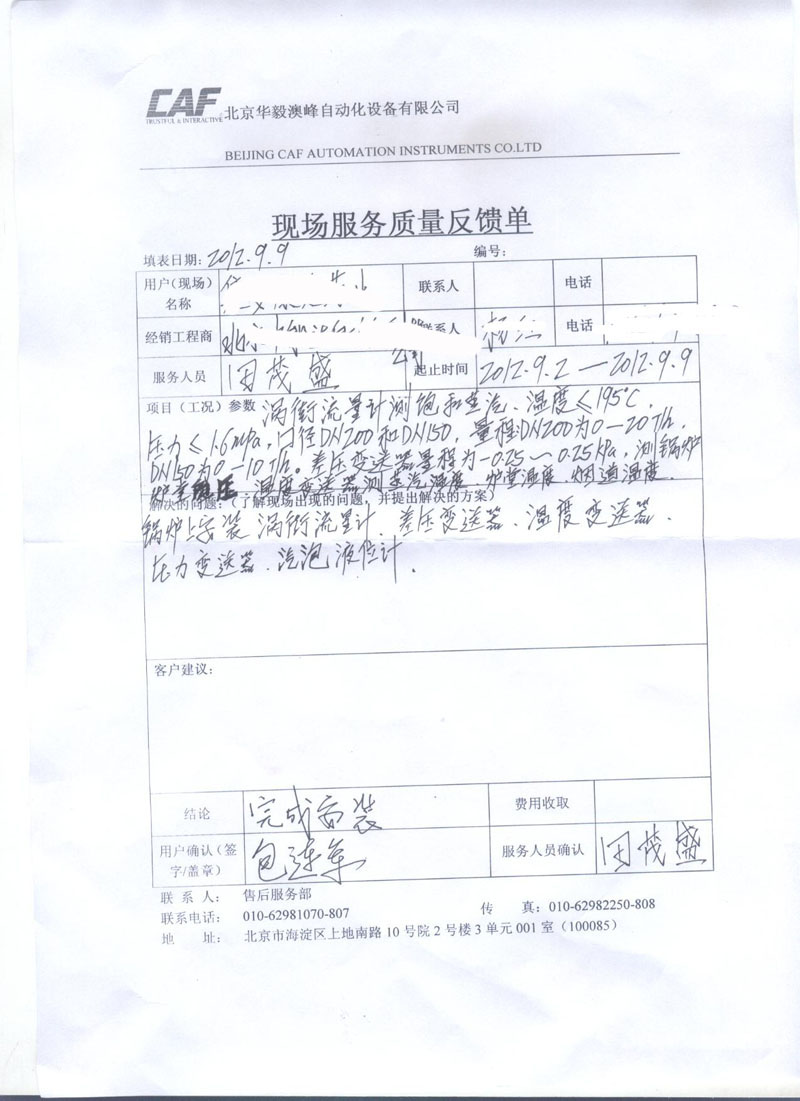 CAF
TRUSTFUL & INTERACTIVE
北京华毅澳峰自动化设备有限公司
BEIJING CAF AUTOMATION INSTRUMENTS CO.LTD
现场服务质量反馈单
填表日期: 2012.9.9 编号:
用户(现场)名称 联系人 电话
经销工程商 联系人 电话
服务人员 田茂盛 起止时间 2012.9.2—2012.9.9
项目(工况)参数 涡街流量计测饱和蒸汽、温度≤195℃,
压力≤1.6mpa,口径DN200和DN150,量程DN200为0-20T/h,
DN150为0-10T/h。差压变送器量程为-0.25~0.25kPa,测锅炉
温度变送器测蒸汽温度、炉堂温度、烟道温度.
解决的问题:(了解现场出现的问题,并提出解决的方案)
锅炉上安装涡街流量计、差压变送器、温度变送器、
压力变送器、汽泡液位计.
客户建议:
结论 完成安装 费用收取
用户确认(签字/盖章) 包连车 服务人员确认 田茂盛
联 系 人: 售后服务部
联系电话: 010-62981070-807 传 真: 010-62982250-808
地 址: 北京市海淀区上地南路10号院2号楼3单元001室(100085)